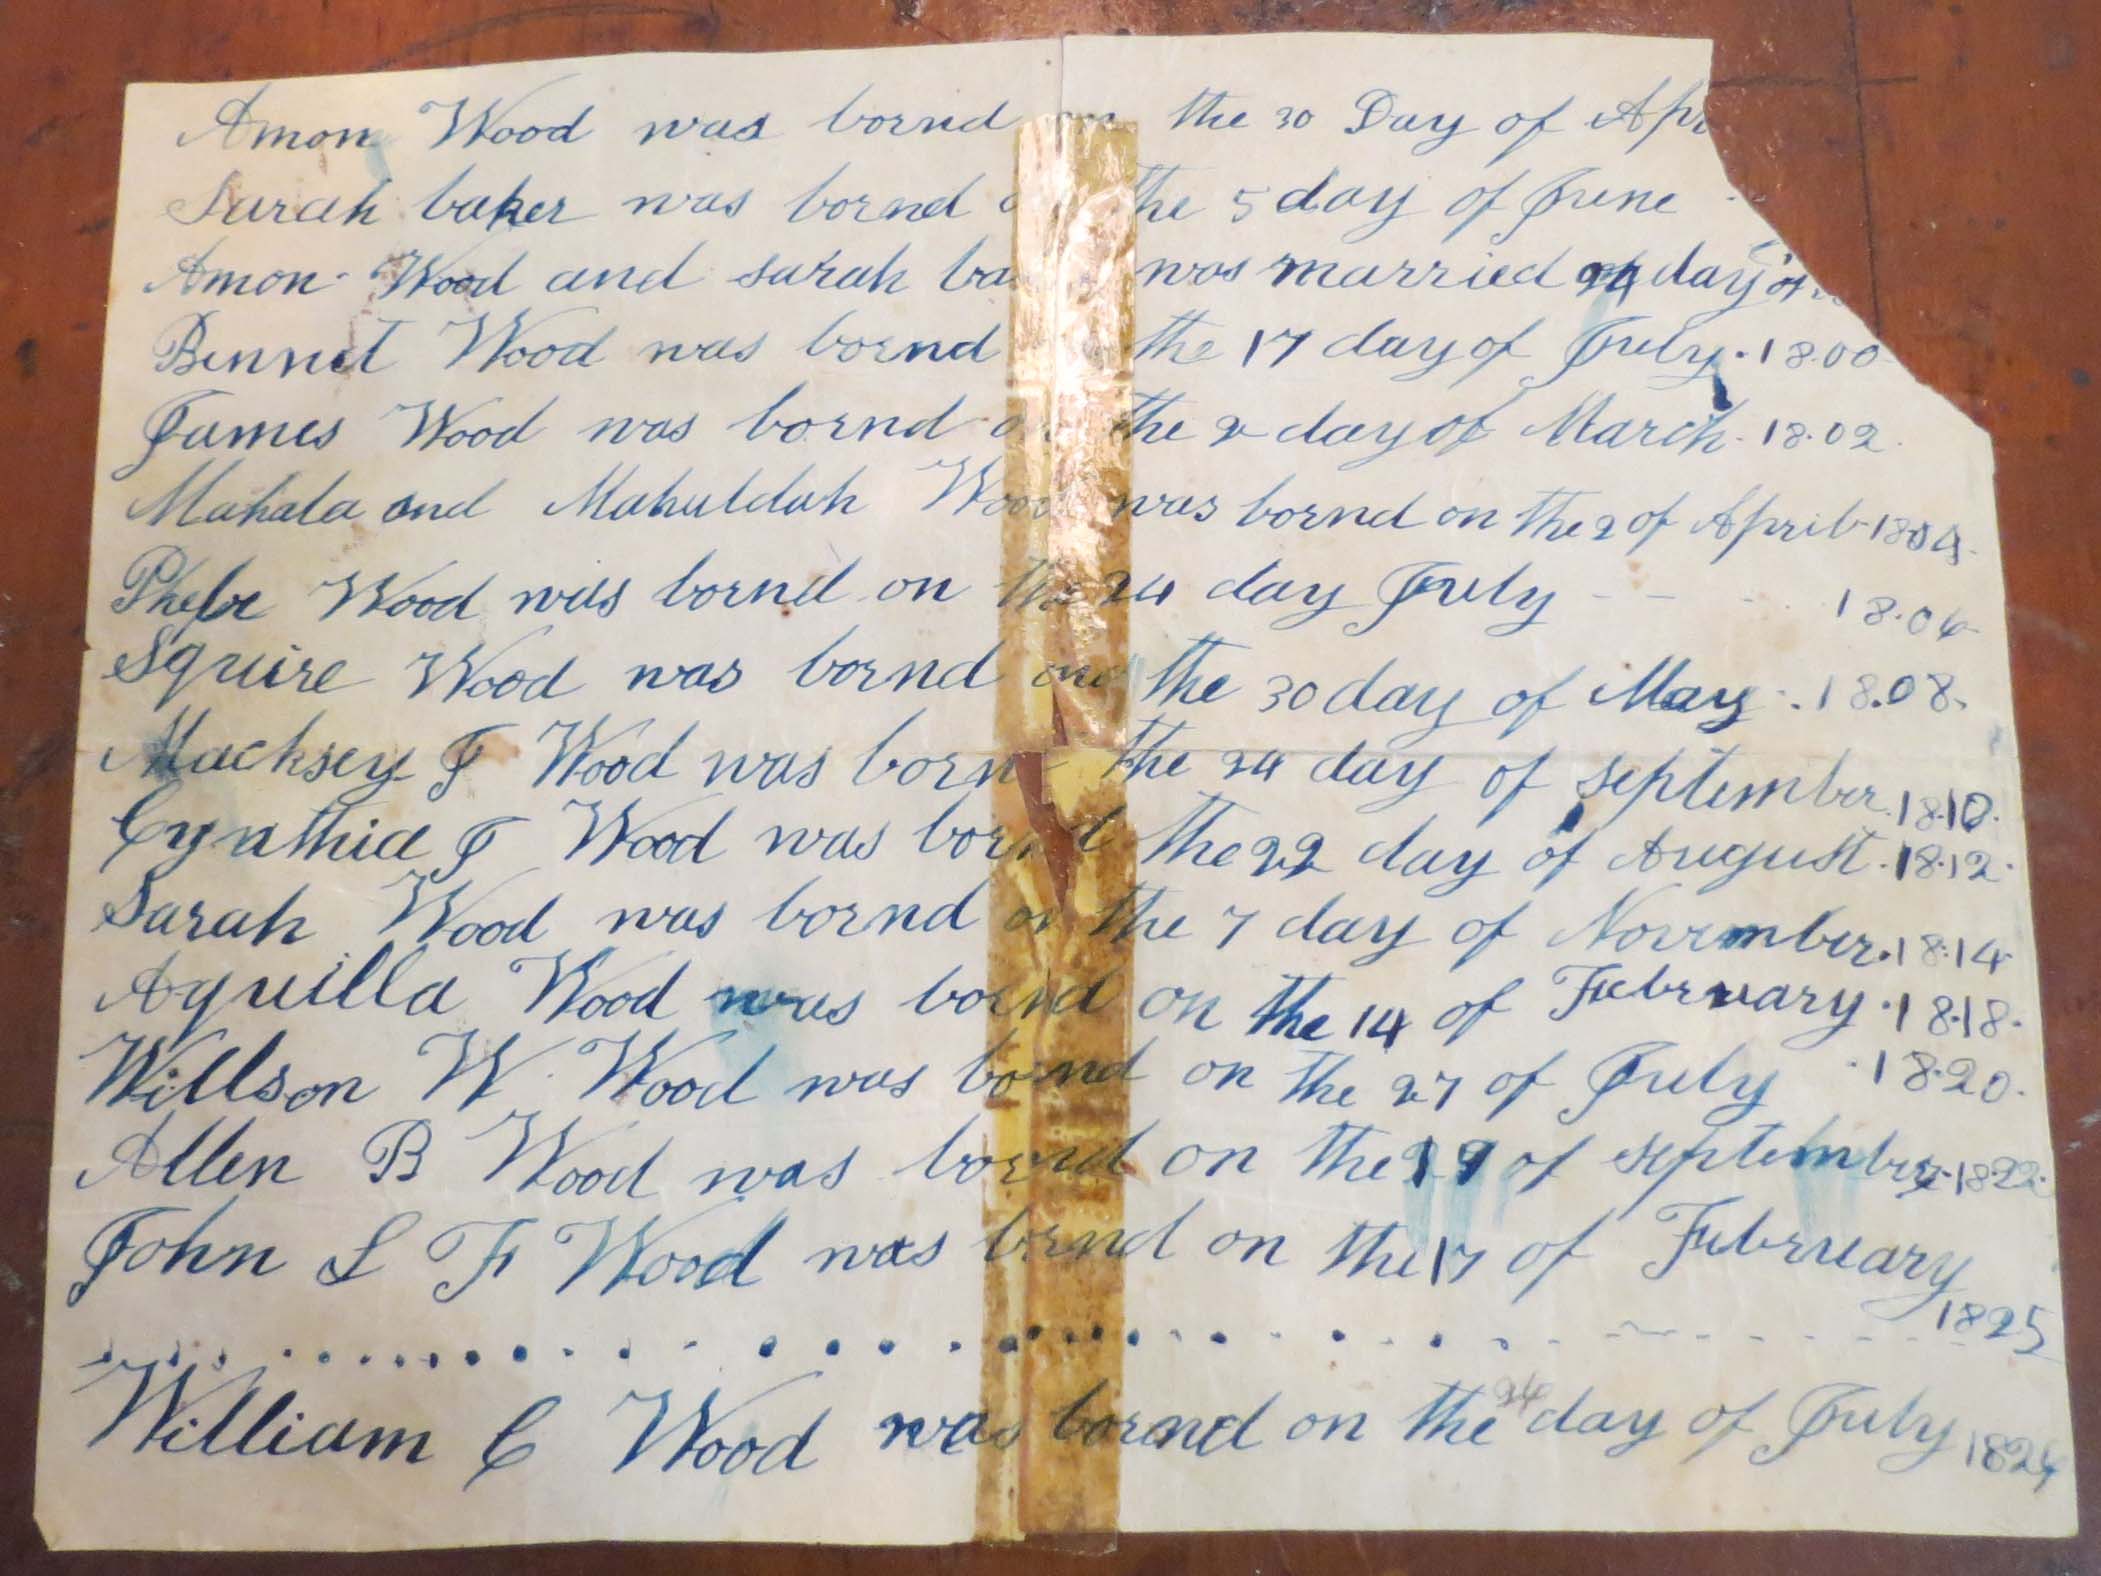 Amon Wood was bornd on the 30 Day of Apr
Sarah baker was bornd the 5 day of June
Amon Wood and sarah ba was married day of
Bennet Wood was bornd the 17 day of July. 18.00
James Wood was bornd on the 2 day of March. 18.02.
Mahala and Mahuldah Wood was bornd on the 2 of April 1804.
Phebe Wood was bornd on the 24 day July - - - . . 18.06
Squire Wood was bornd one the 30 day of May -. 18.08.
Macksey J Wood was born the 24 day of september. 18.10.
Cynthia J Wood was bornd the 22 day of August. 18.12.
Sarah Wood was bornd on the 7 day of November. 18.14.
Aquilla Wood was bornd on the 14 of February. 18.18.
Willson W. Wood was bornd on the 27 of July .18.20.
Allen B Wood was bornd on the of september. 18.22.
John L F Wood was bornd on the 17 of February
1825
William C Wood was bornd on the 24 day of July 1826